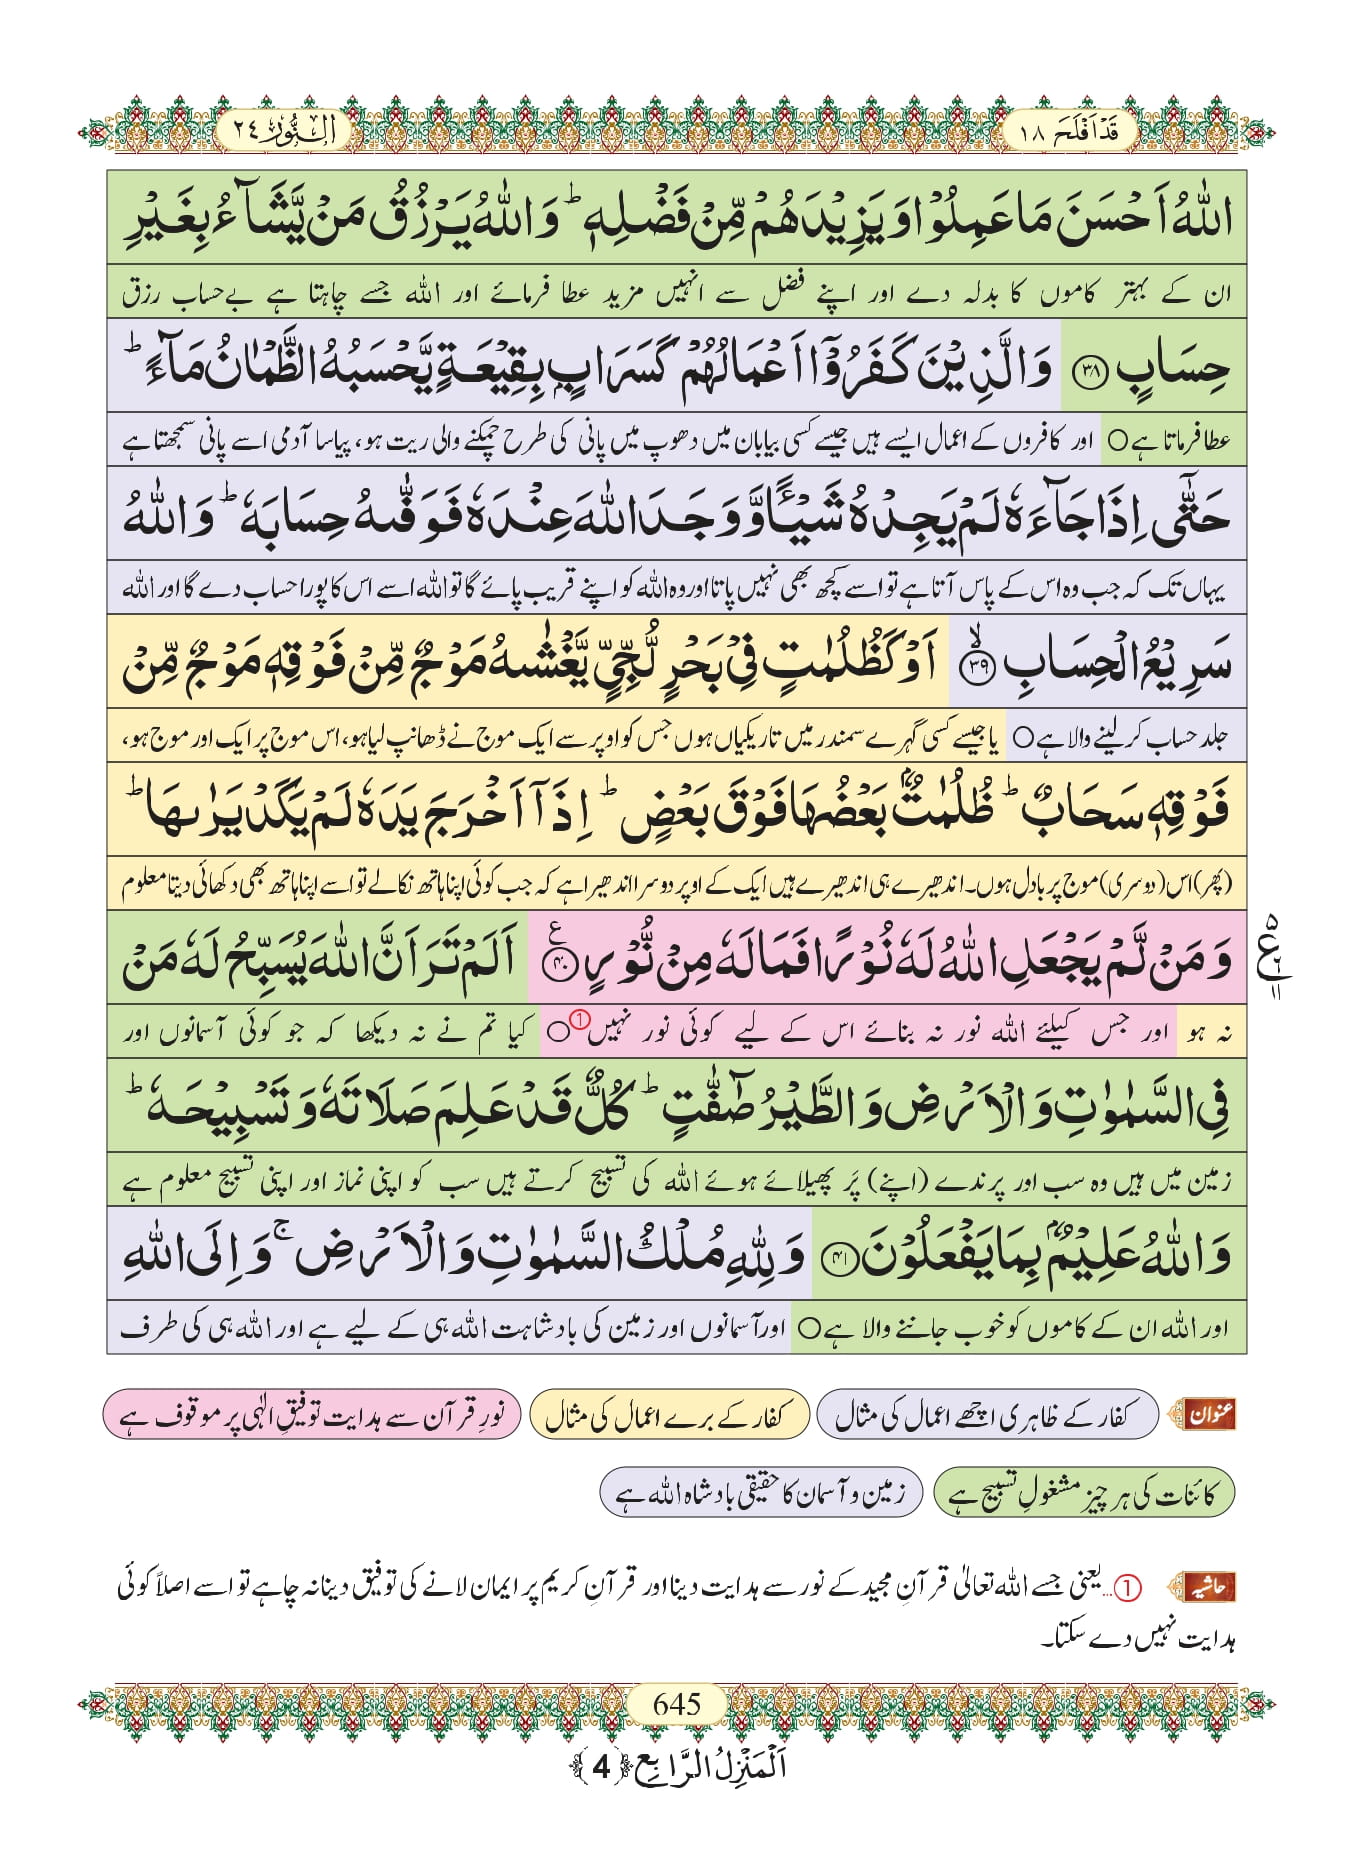 قَدْ اَفْلَحَ ١٨
اَلنُّوْر ٢٤
اللّٰهُ اَحْسَنَ مَا عَمِلُوْا وَ یَزِیْدَهُمْ مِّنْ فَضْلِهٖؕ وَ اللّٰهُ یَرْزُقُ مَنْ یَّشَآءُ بِغَیْرِ
ان کے بہتر کاموں کا بدلہ دے اور اپنے فضل سے انہیں مزید عطا فرمائے اور اللہ جسے چاہتا ہے بےحساب رزق
حِسَابٍ ﴿۳۸﴾ وَ الَّذِیْنَ كَفَرُوْۤا اَعْمَالُهُمْ كَسَرَابٍۭ بِقِیْعَةٍ یَّحْسَبُهُ الظَّمْاٰنُ مَآءًؕ
عطا فرماتا ہے○ اور کافروں کے اعمال ایسے ہیں جیسے کسی بیابان میں دھوپ میں پانی کی طرح چمکنے والی ریت ہو، پیاسا آدمی اسے پانی سمجھتا ہے
حَتّٰۤى اِذَا جَآءَهٗ لَمْ یَجِدْهُ شَیْــٴًـا وَّ وَجَدَ اللّٰهَ عِنْدَهٗ فَوَفّٰىهُ حِسَابَهٗؕ وَ اللّٰهُ
یہاں تک کہ جب وہ اس کے پاس آتا ہے تو اسے کچھ بھی نہیں پاتا اور وہ اللہ کو اپنے قریب پائے گا تو اللہ اسے اس کا پورا حساب دے گا اور اللہ
سَرِیْعُ الْحِسَابِۙ ﴿۳۹﴾ اَوْ كَظُلُمٰتٍ فِیْ بَحْرٍ لُّجِّیٍّ یَّغْشٰىهُ مَوْجٌ مِّنْ فَوْقِهٖ مَوْجٌ مِّنْ
جلد حساب کر لینے والا ہے○ یا جیسے کسی گہرے سمندر میں تاریکیاں ہوں جس کو اوپر سے ایک موج نے ڈھانپ لیا ہو، اس موج پر ایک اور موج ہو،
فَوْقِهٖ سَحَابٌؕ ظُلُمٰتٌۢ بَعْضُهَا فَوْقَ بَعْضٍؕ اِذَاۤ اَخْرَجَ یَدَهٗ لَمْ یَكَدْ یَرٰىهَاؕ
(پھر) اس (دوسری) موج پر بادل ہوں۔ اندھیرے ہی اندھیرے ہیں ایک کے اوپر دوسرا اندھیرا ہے کہ جب کوئی اپنا ہاتھ نکالے تو اسے اپنا ہاتھ بھی دکھائی دیتا معلوم
وَ مَنْ لَّمْ یَجْعَلِ اللّٰهُ لَهٗ نُوْرًا فَمَا لَهٗ مِنْ نُّوْرٍ ﴿۴۰﴾ع اَلَمْ تَرَ اَنَّ اللّٰهَ یُسَبِّحُ لَهٗ مَنْ
ع ٥ ٦ ١١
نہ ہو اور جس کیلئے اللہ نور نہ بنائے اس کے لیے کوئی نور نہیں①○ کیا تم نے نہ دیکھا کہ جو کوئی آسمانوں اور
فِی السَّمٰوٰتِ وَ الْاَرْضِ وَ الطَّیْرُ صٰٓفّٰتٍؕ كُلٌّ قَدْ عَلِمَ صَلَاتَهٗ وَ تَسْبِیْحَهٗؕ
زمین میں ہیں وہ سب اور پرندے (اپنے) پَر پھیلائے ہوئے اللہ کی تسبیح کرتے ہیں سب کو اپنی نماز اور اپنی تسبیح معلوم ہے
وَ اللّٰهُ عَلِیْمٌۢ بِمَا یَفْعَلُوْنَ ﴿۴۱﴾ وَ لِلّٰهِ مُلْكُ السَّمٰوٰتِ وَ الْاَرْضِۚ وَ اِلَى اللّٰهِ
اور اللہ ان کے کاموں کو خوب جاننے والا ہے○ اور آسمانوں اور زمین کی بادشاہت اللہ ہی کے لیے ہے اور اللہ ہی کی طرف
عنوان کفار کے ظاہری اچھے اعمال کی مثال کفار کے برے اعمال کی مثال نورِ قرآن سے ہدایت توفیقِ الٰہی پر موقوف ہے
کائنات کی ہر چیز مشغولِ تسبیح ہے زمین و آسمان کا حقیقی بادشاہ اللہ ہے
حاشیہ ①...یعنی جسے اللہ تعالیٰ قرآنِ مجید کے نور سے ہدایت دینا اور قرآنِ کریم پر ایمان لانے کی توفیق دینا نہ چاہے تو اسے اصلاً کوئی
ہدایت نہیں دے سکتا۔
645
اَلْمَنْزِلُ الرَّابِعُ ﴿4﴾